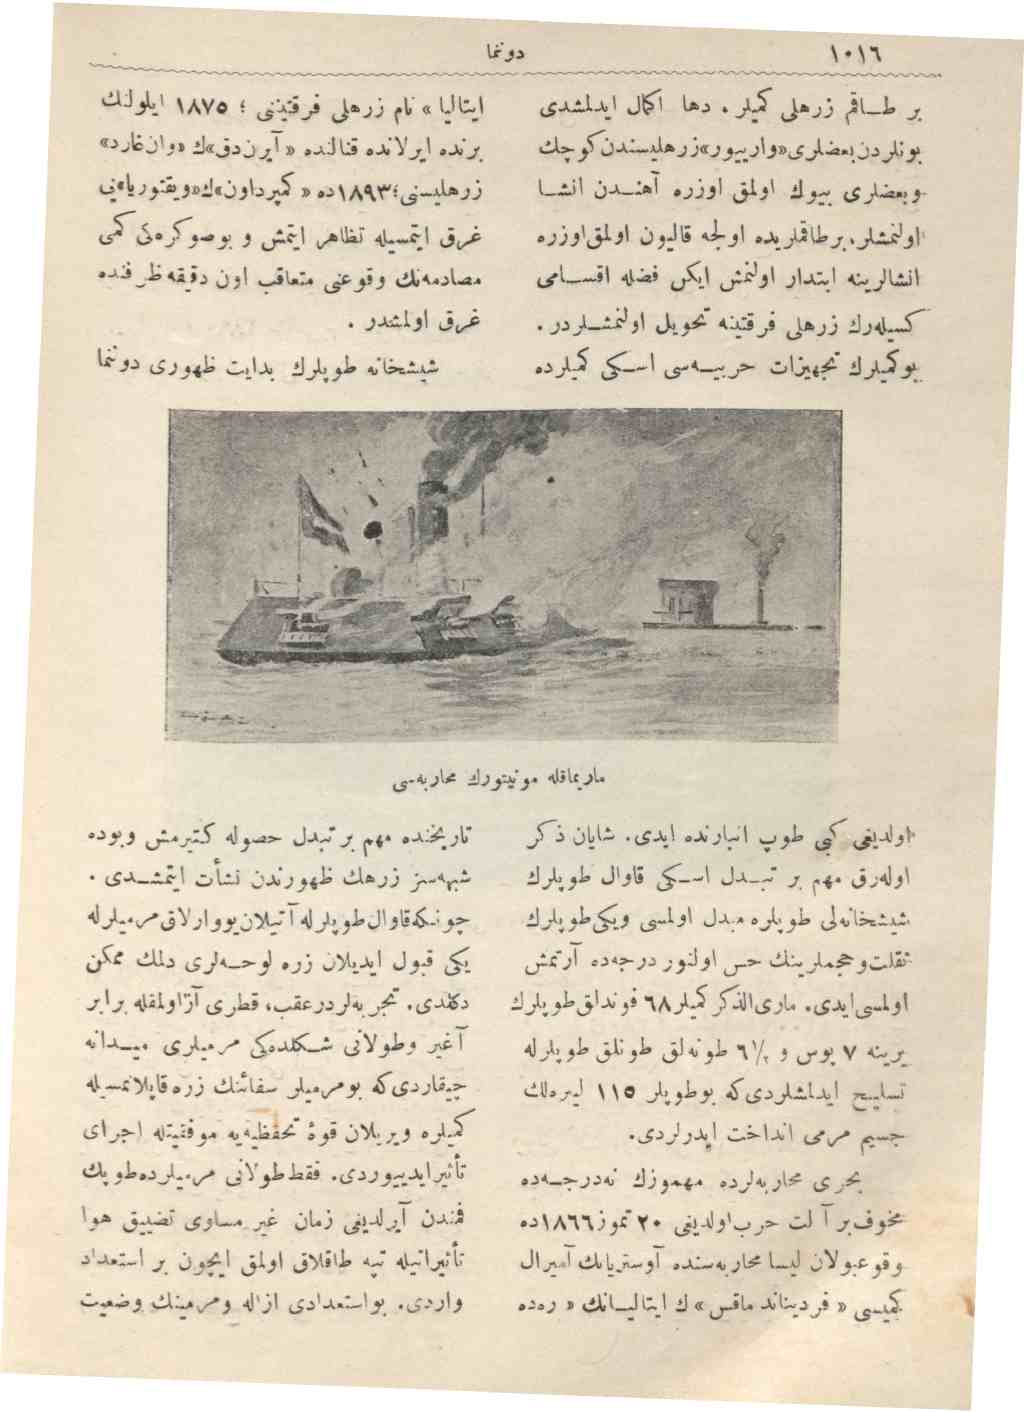 ١٠١٦
دوننما
بر طـاقم زرهلى كميلر . دها اكمال ايدلمشدى
بونلردن بعضلرى «وارييور» زرهليسندن كوچك
وبعضلرى بيوك اولمق اوزره آهنـدن انشـا
اولنمشلر، برطاقملريده اولجه قاليون اولمق اوزره
انشالرينه ابتدار اولنمش ايكن فضله اقسـامى
كسيله‌رك زرهلى فرقتينه تحويل اولنمشـلردر .
بوكميلرك تجهيزات حربيـه‌سى اسـكى كميلرده
ايتاليا » نام زرهلى فرقتيننى ؛ ١٨٧٥ ايلولنك
برنده ايرلانده قنالنده « آيرن دوق » ك « وان غارد »
زرهليسنى ؛ ١٨٩٣ ده « كمپرداون » ك « ويقتوريا » يى
غرق ايتمسيله تظاهر ايتمش و بوصوكره‌كى كمى
مصادمه‌نك وقوعنى متعاقب اون دقيقه ظرفنده
غرق اولمشدر .
شيشخانه طوپلرك بدايت ظهورى دوننما
ماريماقله مونيتورك محاربه‌سى
اولديغى كبى طوپ انبارنده ايدى. شايان ذكر
اوله‌رق مهم بر تبـدل اسـكى قاوال طوپلرك
شيشخانه‌لى طوپلره مبدل اولمسى ويكى طوپلرك
ثقلت و حجملرينك حس اولنور درجه‌ده آرتمش
اولمسى ايدى. مارى الذكر كميلر ٦٨ فوندلق طوپلرك
يرينه ٧ پوس و ٦١/٢ طونه‌لق طونلق طوپلرله
تسليح ايدلمشلردى كه بوطوپلر ١١٥ ليبره‌لك
جسيم مرمى انداخت ايدرلردى.
بحرى محاربه‌لرده مهموزك نه‌درجـه‌ده
مخوف بر آلت حرب اولديغى ٢٠ تموز ١٨٦٦ ده
وقوعبولان ليسا محاربه‌سنده آوستريانك آميرال
كميسى « فرديناند ماقس » ك ايتاليـانك « ره‌ده
تاريخنده مهم بر تبدل حصوله كتيرمش وبوده
شبهه‌سز زرهك ظهورندن نشأت ايتمشـدى .
چونكه قاوال طوپلرله آتيلان يووارلاق مرميلرله
يكى قبول ايديلان زره لوحـه‌لرى دلمك ممكن
دكلدى. تجربه‌لر در عقب، قطرى آز اولمقله برابر
آغير وطولانى شـكلده‌كى مرميلرى ميـدانه
چيقاردى كه بومرميلر سفائنك زره قاپلانمسيله
كميلره ويريلان قوهٔ تحفظيه‌يه موفقيتله اجراى
تأثير ايدييوردى. فقط طولانى مرميلرده طوپك
فمندن آيرلديغى زمان غير مساوى تضييق هوا
تأثيراتيله تپه طاقلاق اولمق ايچون بر استعداد
واردى. بو استعدادى ازاله ومرمينك وضعيت